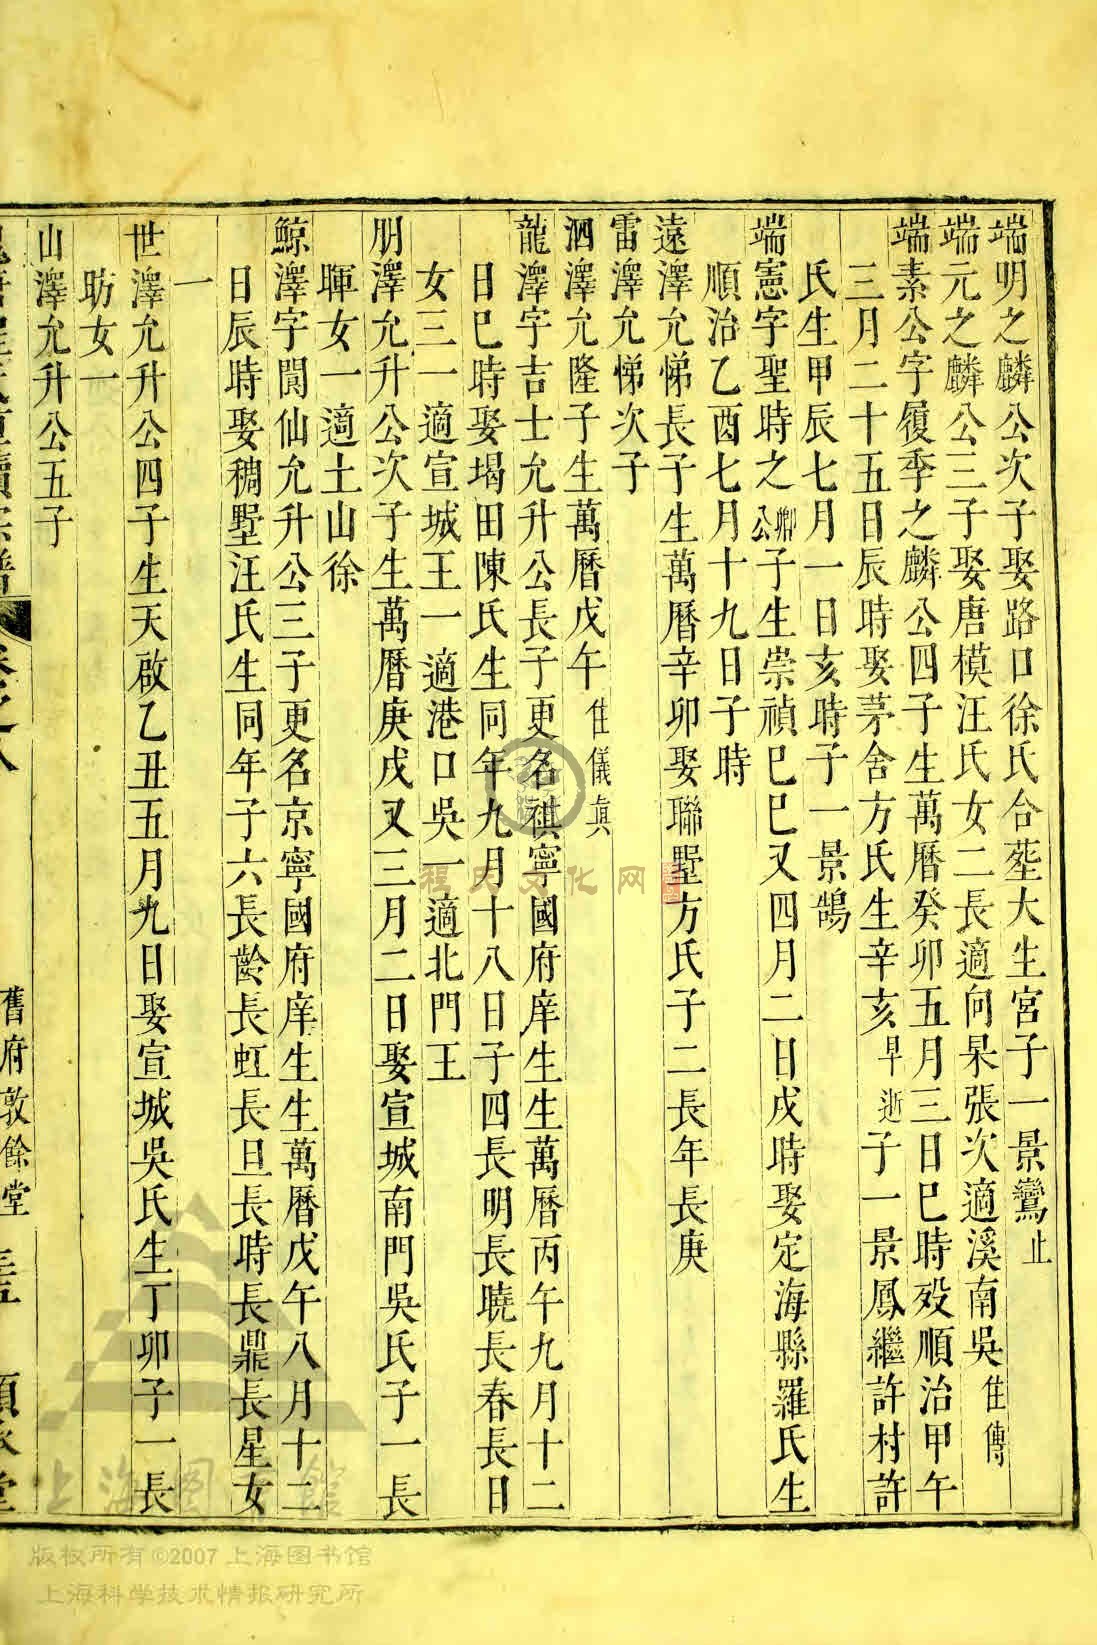 端明之麟公次子娶路口徐氏合塟大生宮子一景鸞止
端元之麟公三子娶唐模汪氏女二長適向杲張次適溪南吳住傳
端素公字履季之麟公四子生萬曆癸卯五月三日巳時歿順治甲午
三月二十五日辰時娶茅舍方氏生辛亥早逝子一景鳳繼許村許
氏生甲辰七月一日亥時子一景鵠
端憲字聖時之卿公子生崇禎己巳又四月二日戌時娶定海縣羅氏生
順治乙酉七月十九日子時
遠澤允悌長子生萬曆辛卯娶聯墅方氏子二長年長庚
雷澤允悌次子
泗澤允隆子生萬曆戊午住儀真
龍澤字吉士允升公長子更名祺寧國府庠生生萬曆丙午九月十二
日巳時娶堨田陳氏生同年九月十八日子四長明長曉長春長日
女三一適宣城王一適港口吳一適北門王
朋澤允升公次子生萬曆庚戌又三月二日娶宣城南門吳氏子一長
暉女一適土山徐
鯨澤字閬仙允升公三子更名京寧國府庠生生萬曆戊午八月十二
日辰時娶稠墅汪氏生同年子六長齡長虹長旦長時長鼎長星女
一
世澤允升公四子生天啟乙丑五月九日娶宣城吳氏生丁卯子一長
昉女一
山澤允升公五子
卷之八 舊府敦餘堂
程氏文化网
上海图书馆
版权所有©2007 上海图书馆
上海科学技术情报研究所